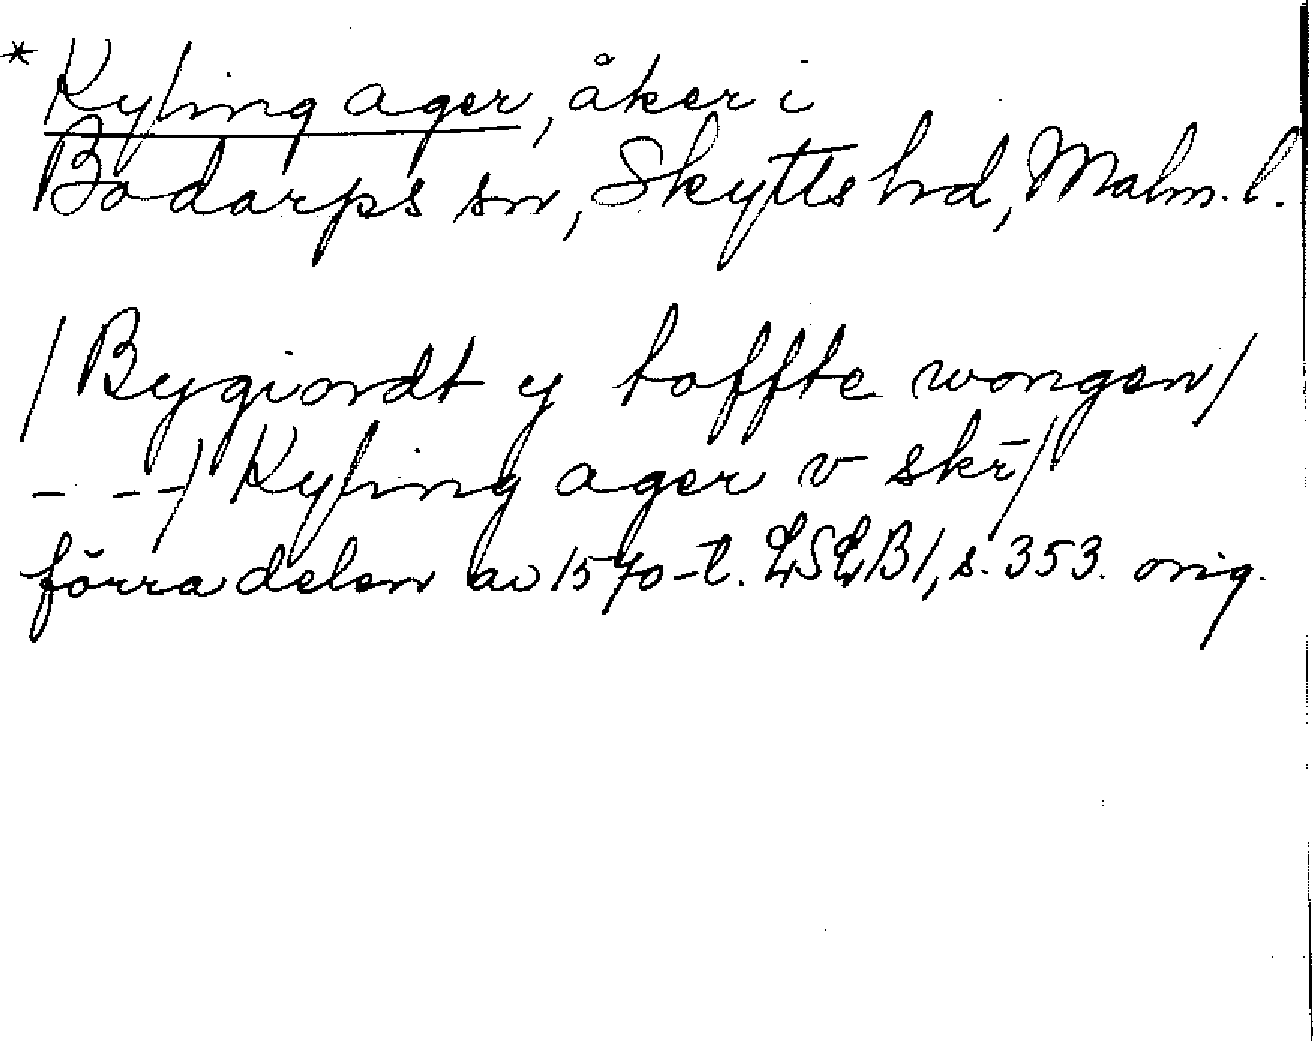 * Kyling ager, åker i
Bodarps sn, Skytts hd, Malm. l.
/ Bygiordt y toffte wongen /
- - -/ Kyling ager v skr̄ /
förra delen av 1570-t. LSLB1, s. 353. orig.